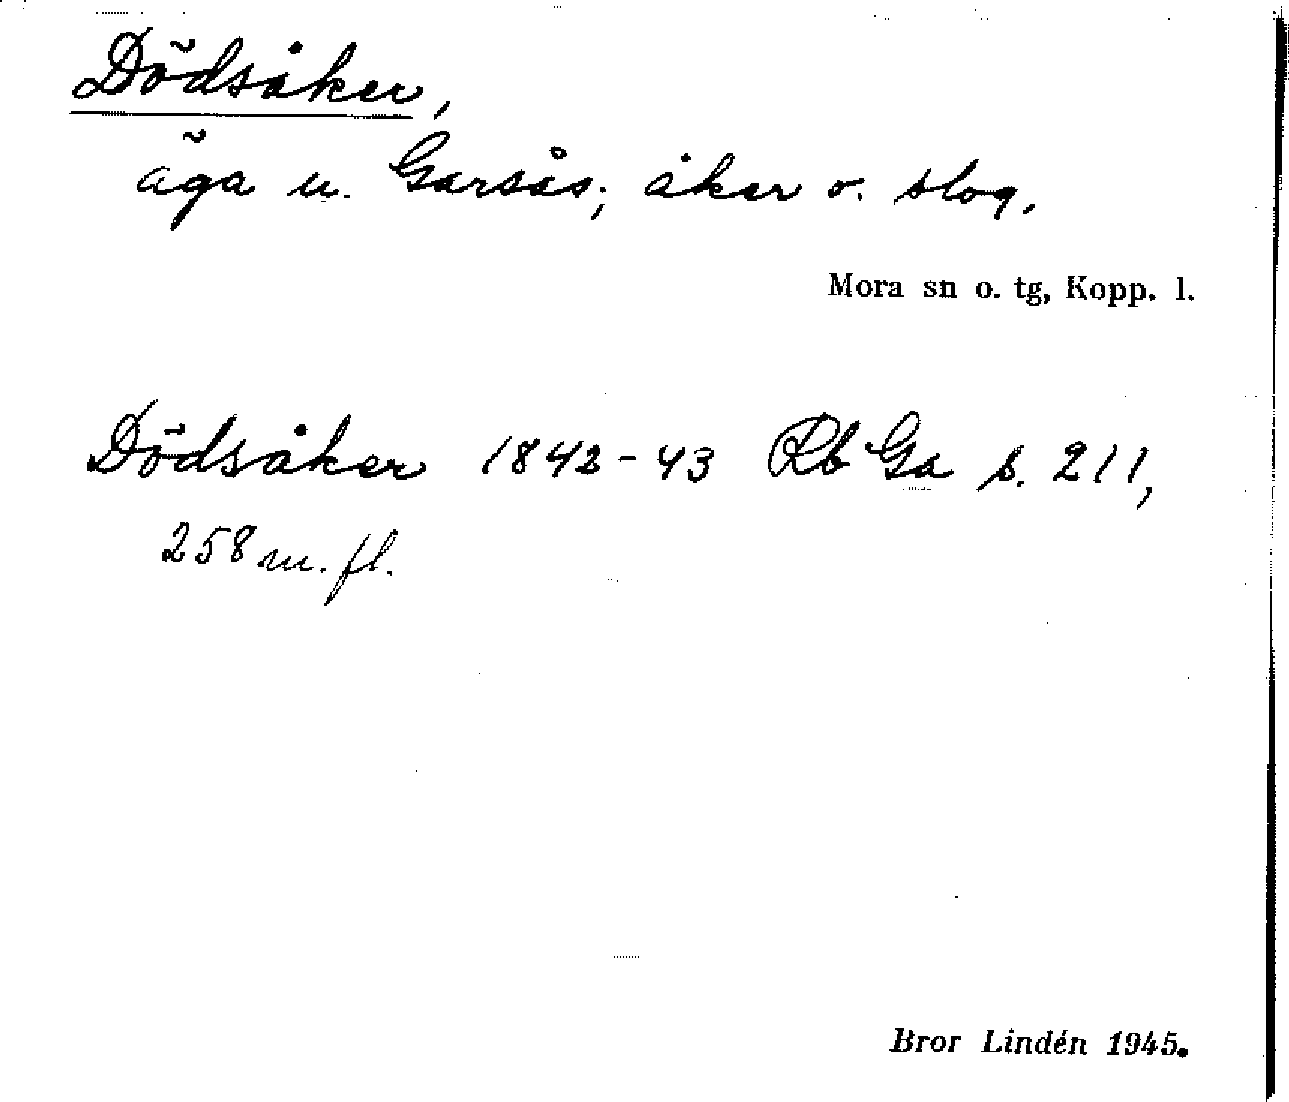 Dödsåker,
äga u. Garsås; åker o. slog.
Mora sn o. tg, Kopp. l.
Dödsåker 1842-43 Rb Ga s. 211,
258 m. fl.
Bror Lindén 1945.